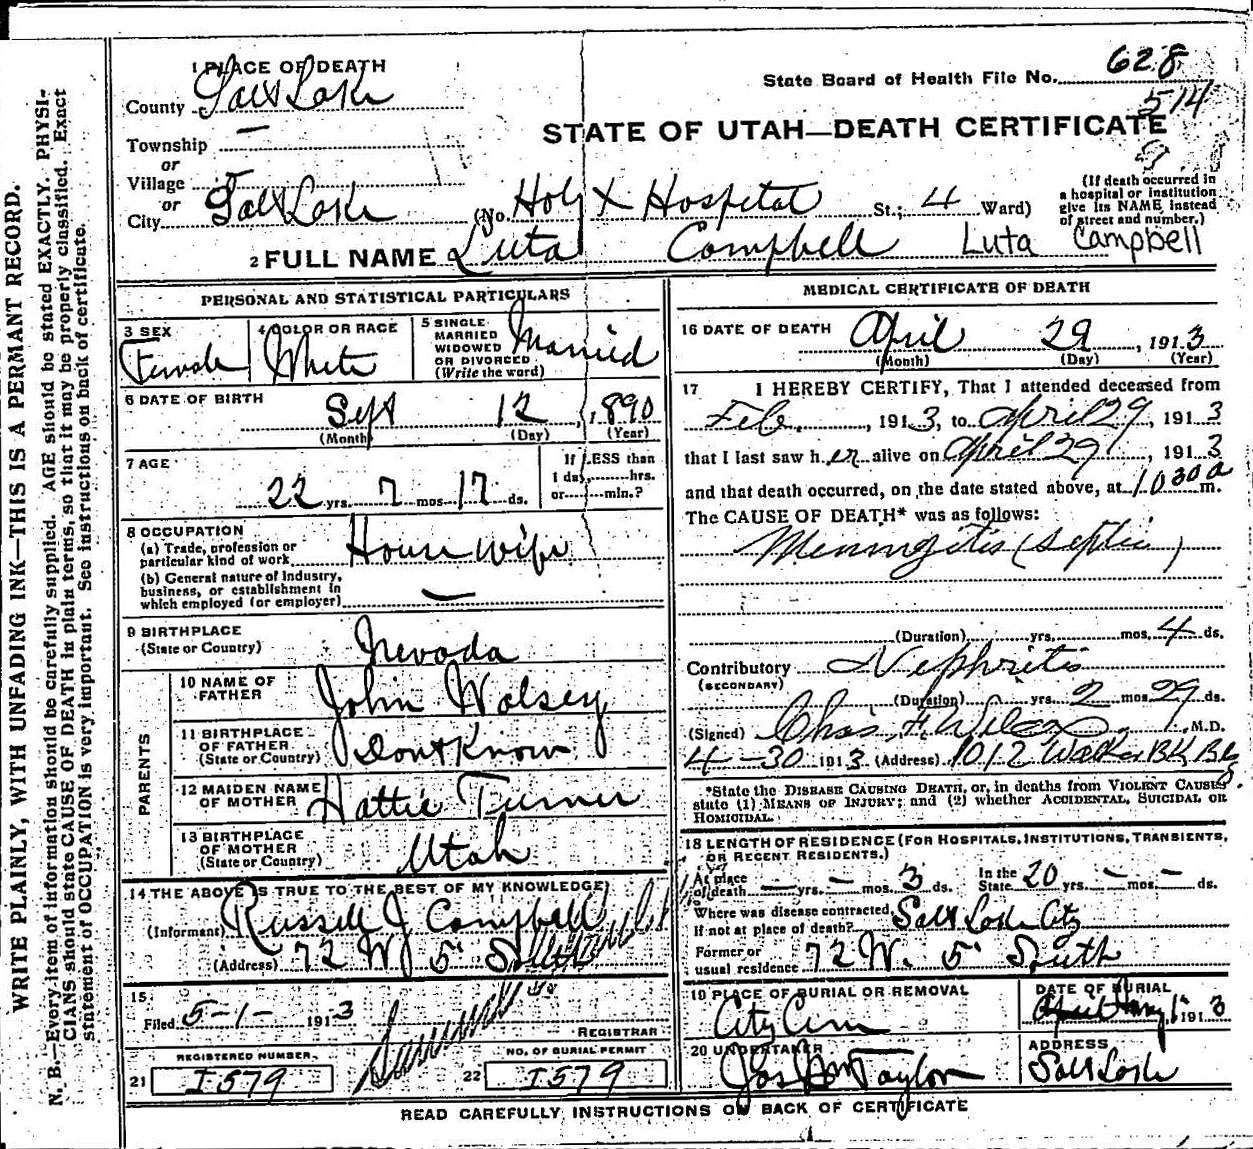 WRITE PLAINLY, WITH UNFADING INK—THIS IS A PERMANT RECORD.
N. B.—Every item of information should be carefully supplied. AGE should be stated EXACTLY. PHYSI-
CIANS should state CAUSE OF DEATH in plain terms, so that it may be properly classified. Exact
statement of OCCUPATION is very important. See instructions on back of certificate.
1 PLACE OF DEATH
County Salt Lake
Township —
or
Village
or
City Salt Lake
State Board of Health File No. 628
514
STATE OF UTAH—DEATH CERTIFICATE
(No. Holy X Hospital St.; 4 Ward)
(If death occurred in
a hospital or institution
give its NAME, instead
of street and number.)
2 FULL NAME Luta Campbell Luta Campbell
PERSONAL AND STATISTICAL PARTICULARS
3 SEX
Female
4 COLOR OR RACE
White
5 SINGLE
MARRIED
WIDOWED
OR DIVORCED
(Write the word)
Married
6 DATE OF BIRTH
Sept 12, 1890
(Month) (Day) (Year)
7 AGE
22 yrs. 7 mos. 17 ds.
If LESS than
1 day, hrs.
or min.?
8 OCCUPATION
(a) Trade, profession or
particular kind of work House wife
(b) General nature of industry,
business, or establishment in
which employed (or employer) —
9 BIRTHPLACE
(State or Country) Nevada
PARENTS
10 NAME OF
FATHER John Wolsey
11 BIRTHPLACE
OF FATHER
(State or Country) Dont Know
12 MAIDEN NAME
OF MOTHER Hattie Turner
13 BIRTHPLACE
OF MOTHER
(State or Country) Utah
14 THE ABOVE IS TRUE TO THE BEST OF MY KNOWLEDGE
(Informant) Russell J Campbell
(Address) 72 W 5 South
15
Filed 5-1- 1913
REGISTRAR
REGISTERED NUMBER.
21 I579
NO. OF BURIAL PERMIT
22 I579
MEDICAL CERTIFICATE OF DEATH
16 DATE OF DEATH April 29, 1913
(Month) (Day) (Year)
17 I HEREBY CERTIFY, That I attended deceased from
Feb., 1913, to April 29, 1913
that I last saw her alive on April 29, 1913
and that death occurred, on the date stated above, at 1030a m.
The CAUSE OF DEATH* was as follows:
Meningitis (septic)
(Duration) yrs. mos. 4 ds.
Contributory Nephritis
(SECONDARY)
(Duration) yrs. 2 mos. 29 ds.
(Signed) Chas. F. Wilcox, M.D.
4-30 1913 (Address) 1012 Walker BK Blg
*State the DISEASE CAUSING DEATH, or, in deaths from VIOLENT CAUSES
state (1) MEANS OF INJURY; and (2) whether ACCIDENTAL, SUICIDAL OR
HOMICIDAL.
18 LENGTH OF RESIDENCE (FOR HOSPITALS, INSTITUTIONS, TRANSIENTS,
OR RECENT RESIDENTS.)
At place
of death — yrs. — mos. 3 ds.
In the
State 20 yrs. — mos. — ds.
Where was disease contracted
If not at place of death? Salt Lake City
Former or
usual residence 72 W. 5 South
19 PLACE OF BURIAL OR REMOVAL
City Cem
DATE OF BURIAL
April May 1 1913
20 UNDERTAKER
Taylor
ADDRESS
Salt Lake
READ CAREFULLY INSTRUCTIONS ON BACK OF CERTIFICATE